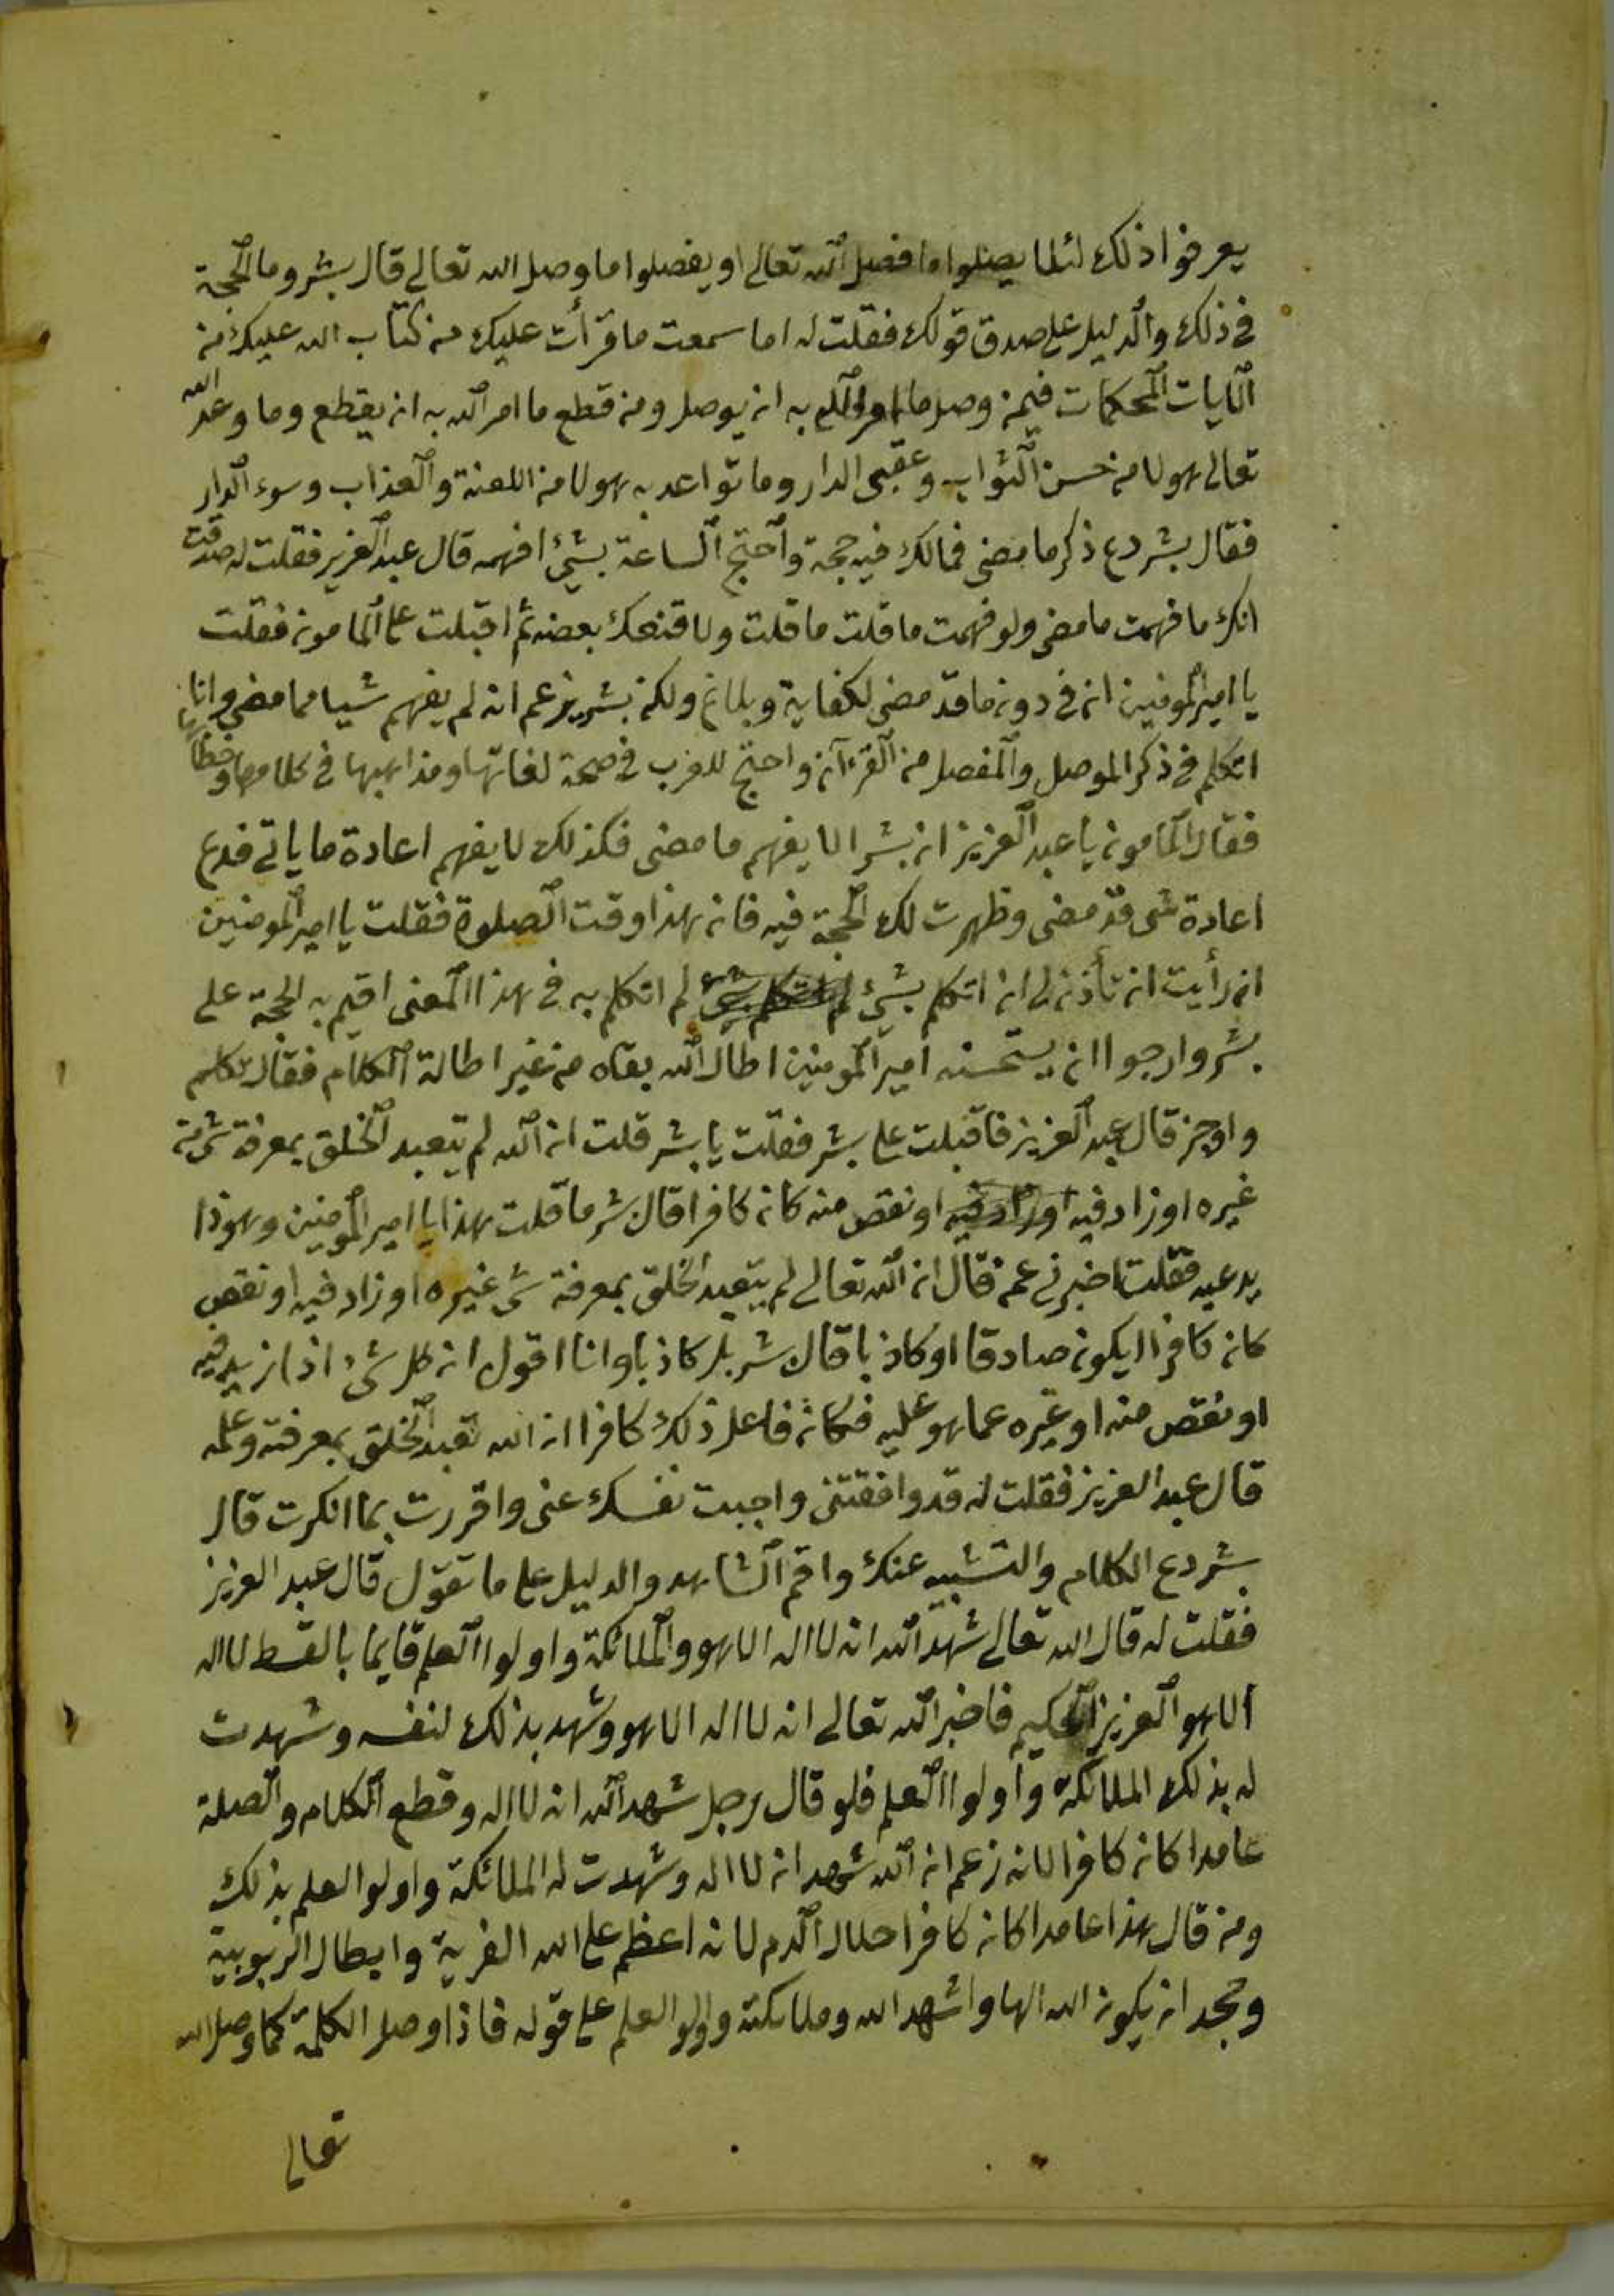 يعرفوا ذلك لئلا يصلوا ما فصل الله تعالى او يفصلوا ما وصل الله تعالى قال بشر وما الحجة
في ذلك والدليل على صدق قولك فقلت له اما سمعت ما قرأت عليك من كتاب الله عليك من
الايات المحكمات فيمن وصل ما امر الله به ان يوصل ومن قطع ما امر الله به ان يقطع وما وعد الله
تعالى هولا من حسن الثواب وعقبى الدار وما تواعد به هولا من اللعنة والعذاب وسوء الدار
فقال بشر دع ذكر ما مضى فمالك فيه حجة واحتج الساعة بشيء افهمه قال عبد العزيز فقلت له صدقت
انك ما فهمت ما مضى ولو فهمت ما قلت ما قلت ولاقنعك بعضه ثم اقبلت على المامون فقلت
يا امير المومنين ان في دون ما قد مضى لكفاية وبلاغ ولكن بشر يزعم انه لم يفهم شيا مما مضى وانا
اتكلم في ذكر الموصل والمفصل من القرءان واحتج للعرب في صحة لغاتها ومذاهبها في كلامها وخطابها
فقال المامون يا عبد العزيز ان بشرا لا يفهم ما مضى فكذلك لا يفهم اعادة ما ياتي فدع
اعادة شي قد مضى وظهرت لك الحجة فيه فان هذا وقت الصلوة فقلت يا امير المومنين
ان رأيت ان تأذن لي ان اتكلم بشيء لم اتكلم به في هذا المعنى اقيم به الحجة على
بشر وارجوا ان يستحسنه امير المومنين اطال الله بقاه من غير اطالة الكلام فقال تكلم
واوجز قال عبد العزيز فاقبلت على بشر فقلت يا بشر قلت ان الله لم يتعبد الخلق بمعرفة شي من
غيره او زاد فيه او نقص منه كان كافرا قال بشر ما قلت هذا يا امير المومنين وهوذا
يدعيه فقلت اخبرني عمن قال ان الله تعالى لم يتعبد الخلق بمعرفة شي غيره او زاد فيه او نقص
كان كافرا ايكون صادقا او كاذبا قال بشر بل كاذبا وانا اقول ان كل شيء اذا زيد فيه
او نقص منه او غيره عما هو عليه فكان فاعل ذلك كافرا ان الله تعبد الخلق بمعرفته وعلمه
قال عبد العزيز فقلت له قد وافقتني واجبت نفسك عني واقررت بما انكرت قال
بشر دع الكلام والتشبيه عنك واقم الشاهد والدليل على ما تقول قال عبد العزيز
فقلت له قال الله تعالى شهد الله انه لا اله الا هو والملائكة واولوا العلم قايما بالقسط لا اله
الا هو العزيز الحكيم فاخبر الله تعالى انه لا اله الا هو وشهد بذلك لنفسه وشهدت
له بذلك الملائكة واولوا العلم فلو قال رجل شهد الله انه لا اله وقطع الكلام والصلة
عامدا كان كافرا لانه زعم ان الله شهد انه لا اله وشهدت له الملائكة واولو العلم بذلك
ومن قال هذا عامدا كان كافرا حلال الدم لانه اعظم على الله الفرية وابطال الربوبية
وجحد ان يكون الله الها واشهد الله وملائكته واولو العلم على قوله فاذا وصل الكلمة كما وصل الله
تعالى